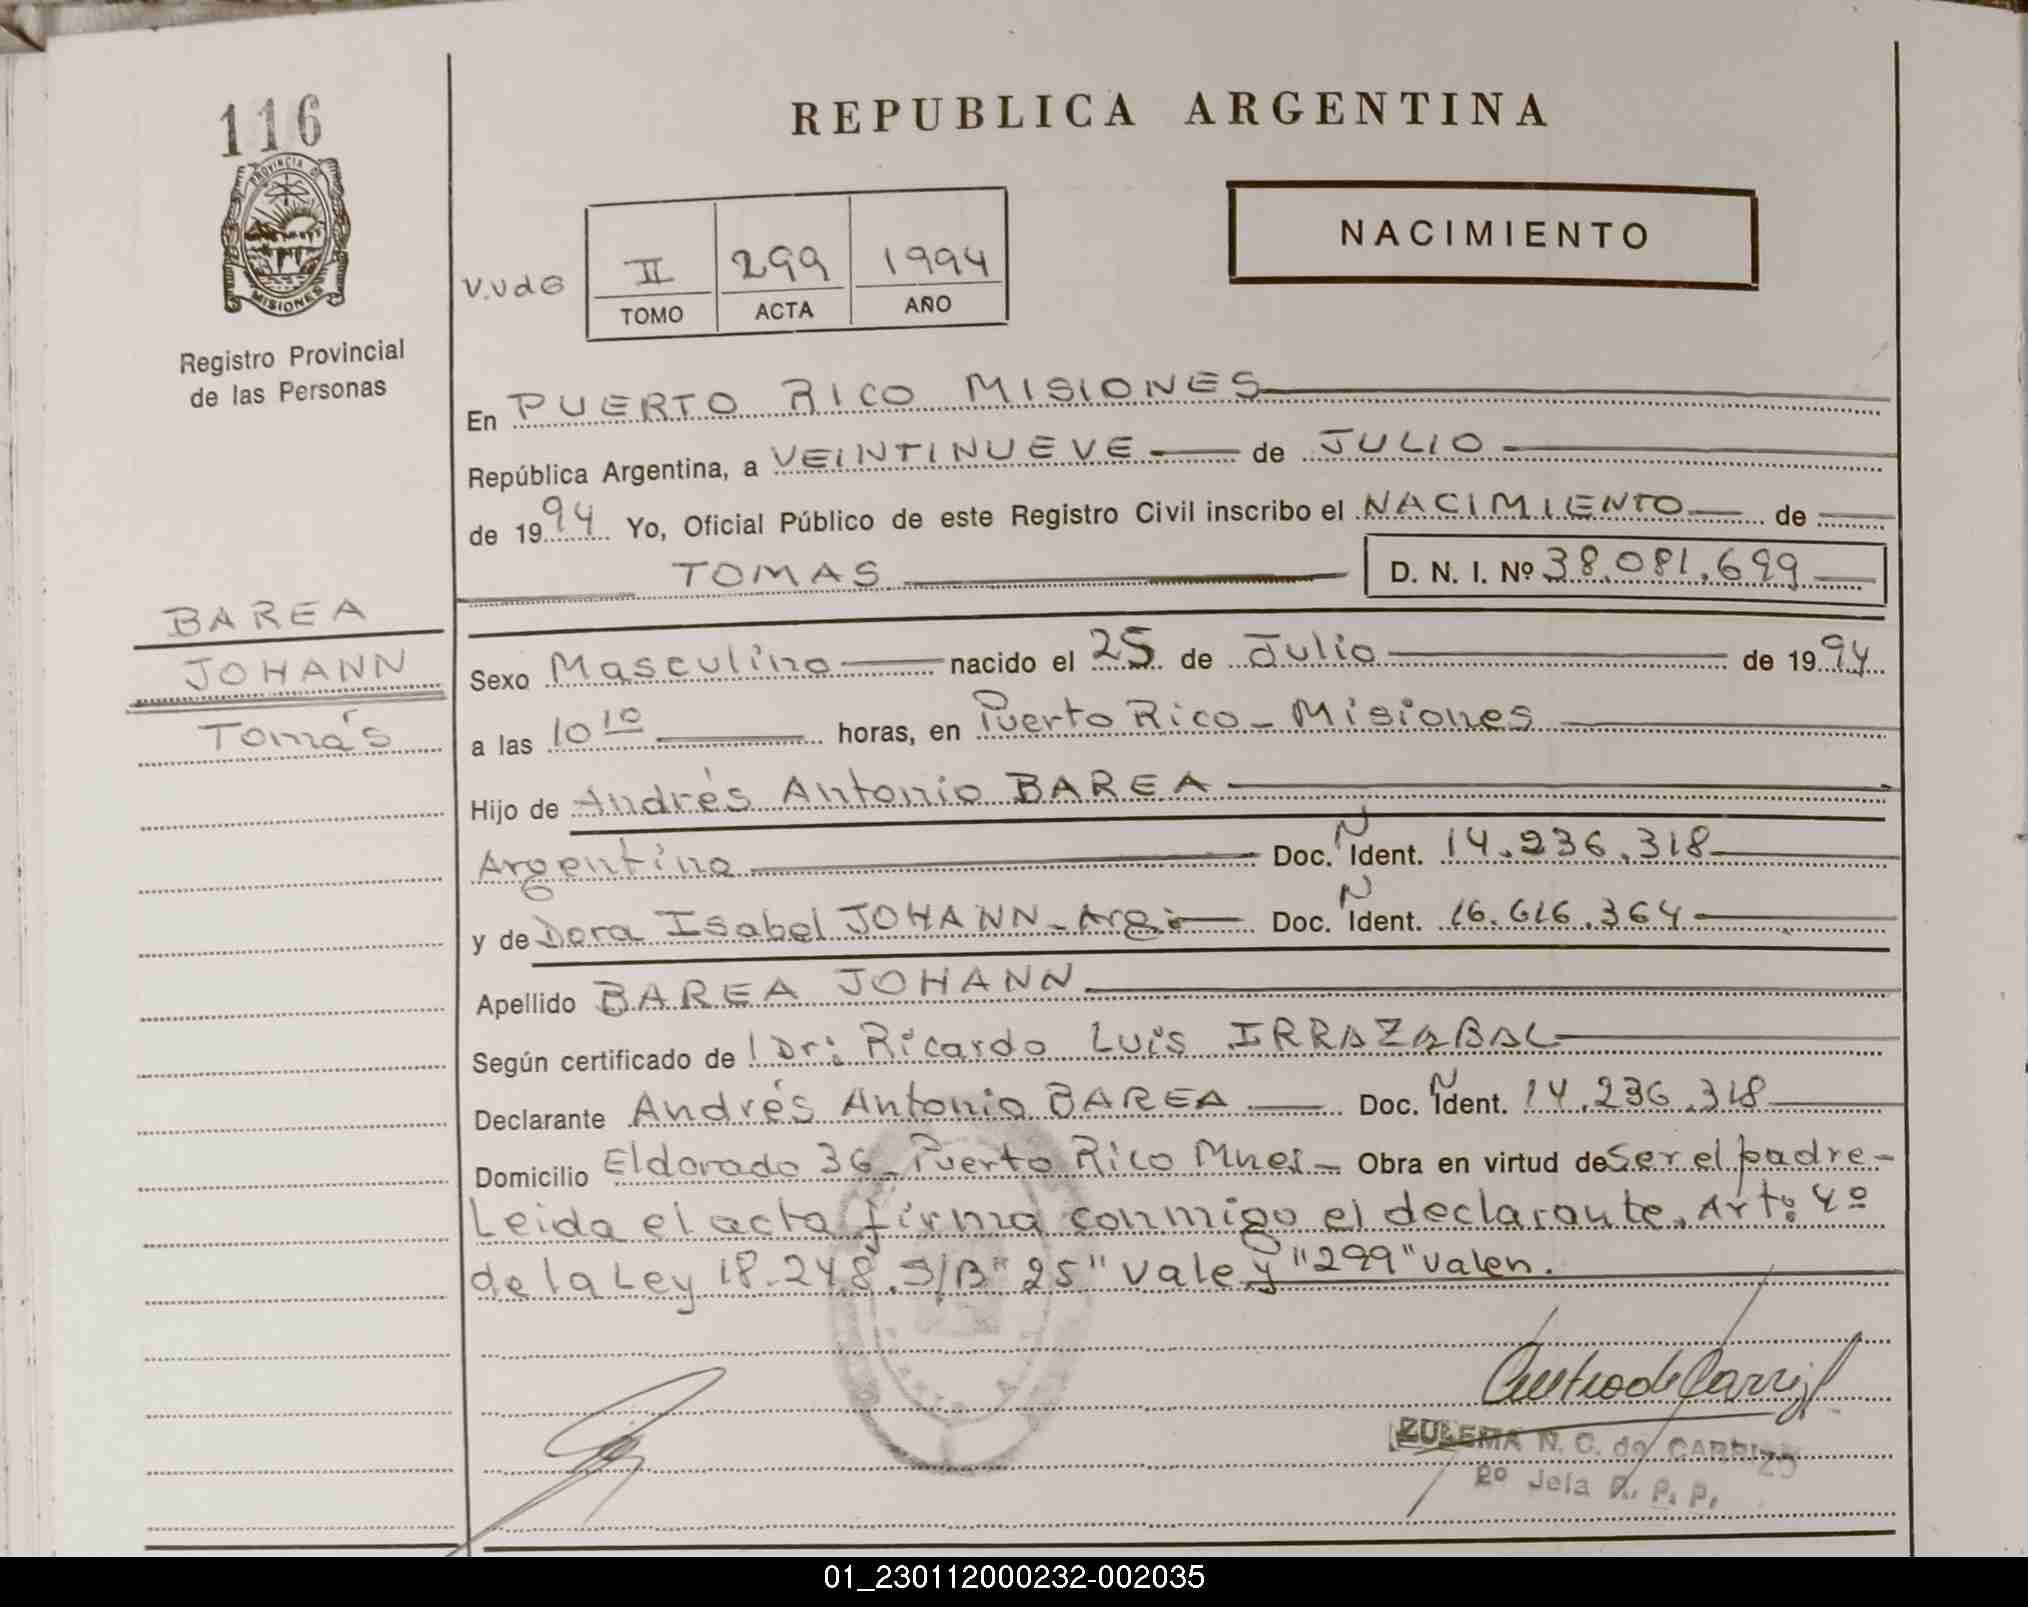 116
REPUBLICA ARGENTINA
PROVINCIA DE
MISIONES
Registro Provincial
de las Personas
NACIMIENTO
V.VdG
II 299 1994
TOMO ACTA AÑO
En PUERTO RICO MISIONES
República Argentina, a VEINTINUEVE de JULIO
de 1994 Yo, Oficial Público de este Registro Civil inscribo el NACIMIENTO de
TOMAS D. N. I. Nº 38.081.699
BAREA
JOHANN
Tomás
Sexo Masculino nacido el 25 de Julio de 1994
a las 10 10 horas, en Puerto Rico - Misiones
Hijo de Andrés Antonio BAREA
Argentino Doc. N Ident. 14.236.318
y de Dora Isabel JOHANN - Arg. Doc. N Ident. 16.616.364
Apellido BAREA JOHANN
Según certificado de l Dr: Ricardo Luis IRRAZABAL
Declarante Andrés Antonio BAREA Doc. N Ident. 14.236.318
Domicilio Eldorado 36 - Puerto Rico Mnes - Obra en virtud de Ser el padre -
Leida el acta firma conmigo el declarante. Art: 4º
de la Ley 18.248. S/B "25" Vale y "299" Valen.
ZULEMA N. C. de CARRIZO
2º Jefa R. P. P.
01_230112000232-002035